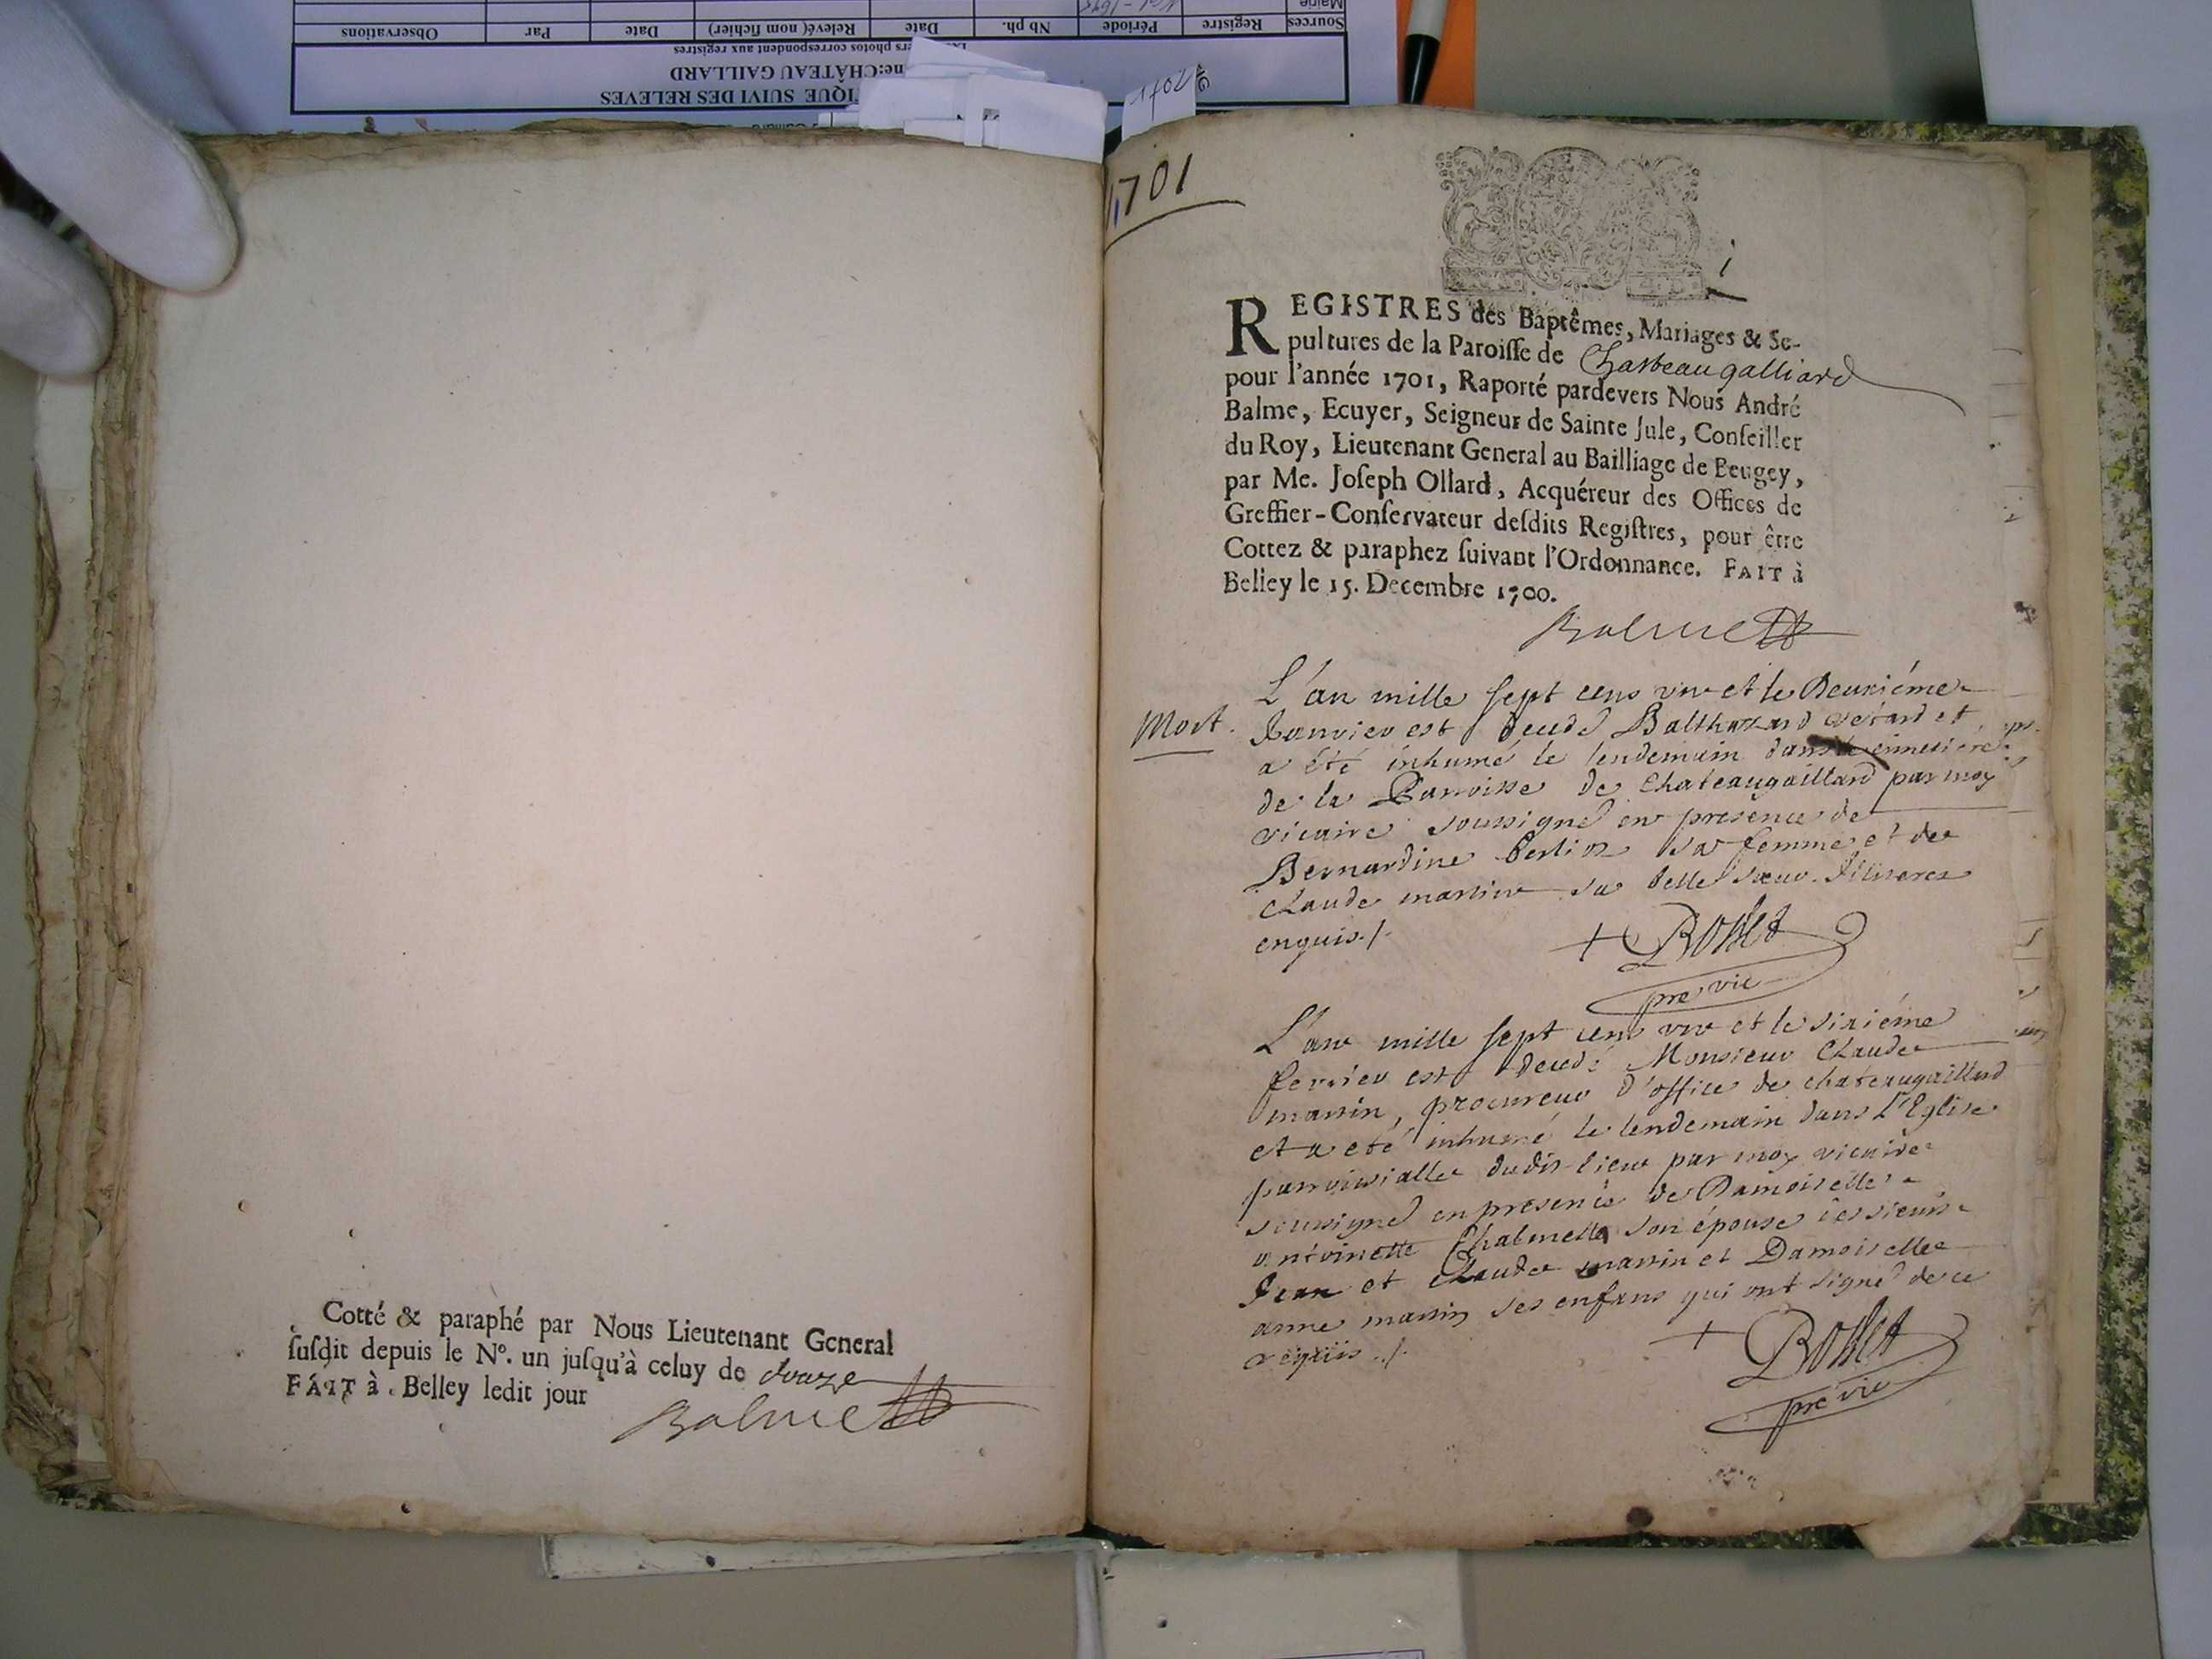 Cotté & paraphé par Nous Lieutenant General
ſuſdit depuis le N°. un juſqu'à celuy de douze
FAIT à Belley ledit jour
Balme
1701
1
REGISTRES des Baptêmes, Mariages & Se-
pultures de la Paroiſſe de Chasteaugalliard
pour l'année 1701, Raporté pardevers Nous André
Balme, Ecuyer, Seigneur de Sainte Jule, Conſeiller
du Roy, Lieutenant General au Bailliage de Beugey,
par Me. Joſeph Ollard, Acquéreur des Offices de
Greffier-Conſervateur deſdits Regiſtres, pour être
Cottez & paraphez ſuivant l'Ordonnance. FAIT à
Belley le 15. Decembre 1700.
Balme
Mort.
L'an mille sept cens un et le deuxiéme
Janvier est decedé Balthazard et
a été inhumé le lendemain dans le cimetiére
de la Parroisse de Chateaugaillard par moy
vicaire soussigné en presence de
Bernardine sa femme et de
Claude massin sa belle sœur. Illiterez
enquis./.
+ Rosset
pre vic
L'an mille sept cens un et le sixiéme
fevrier est decedé Monsieur Claude
massin, procureur d'office de chateaugaillard
et a eté inhumé le lendemain dans L'Eglise
parroissialle dudit lieu par moy vicaire
soussigné en presence de Damoiselle
antoinette son épouse des sieurs
Jean et Claude massin et Damoiselle
anne massin ses enfans qui ont signé de ce
requis./.
+ Rosset
pre vic
IQUE SUIVI DES RELEVES
ne: CHÂTEAU GAILLARD
ers photos correspondent aux registres
Sources Registre Période Nb ph. Date Relevé (nom fichier) Date Par Observations
Mairie
1702